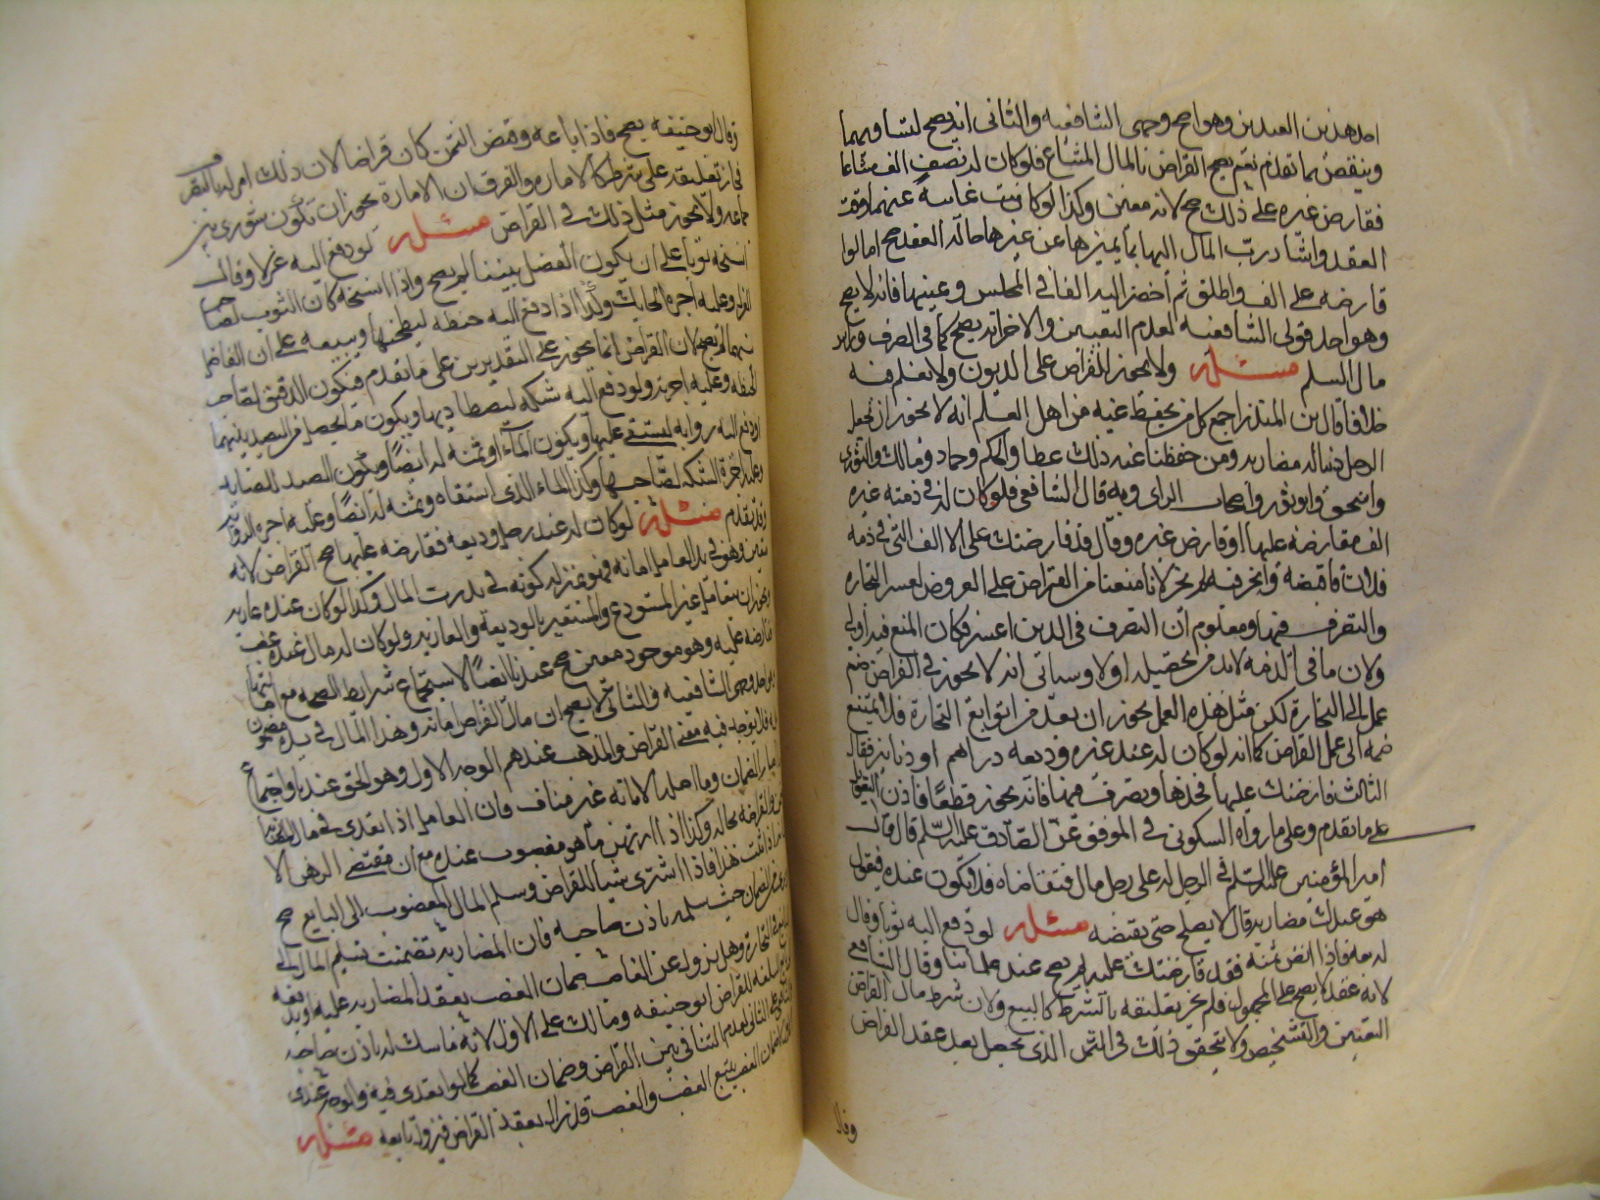 احد هذين العبدين وهو اصح وجهى الشافعيه والثانى انه يصح لتساويهما
وينقض بما تقدم نعم يصح القراض بالمال المشاع فلو كان له نصف الف مشاعا
فقارض غيره على ذلك صح لانه معين وكذا لو كان غائبة عنهما وقت
العقد واشار رب المال اليها بما يميزها عن غيرها حالة العقد صح اما لو
قارضه على الف واطلق ثم احضر اليه الفا فى المجلس وعينها فانه لا يصح
وهو احد قولى الشافعيه لعدم التعيين والاخر انه يصح كما فى الصرف وراس
مال السلم مسئله ولا يجوز القراض على الديون ولا نعلم فيه
خلافا قال بن المنذر اجمع كل من يحفظ عنه من اهل العلم انه لا يجوز ان يجعل
الرجل دينا له مضاربه ومن حفظنا عنه ذلك عطا والحكم وحماد ومالك والثورى
واسحق وابو ثور واصحاب الراى وبه قال الشافعى فلو كان له فى ذمة غيره
الف فقارضه عليها او قارض غيره وقال قد قارضتك على الالف التى فى ذمة
فلان فاقبضه واتجر فيه لم يجز لانا منعنا من القراض على العروض لعسر التجاره
والتصرف فيها ومعلوم ان التصرف فى الدين اعسر فكان المنع فيه اولى
ولان ما فى الذمه لا بد من تحصيله اولا وسياتى انه لا يجوز فى القراض ضم
عمل الى التجارة لكن مثل هذه العمل يجوز ان يعد من توابع التجارة فلا يمتنع
ضمه الى عمل القراض كما انه لو كان له عند غيره وديعه دراهم او دنانير فقال
الثالث قارضتك عليها فخذها وتصرف فيها فانه يجوز قطعا فاذن التعويل
على ما تقدم وعلى ما رواه السكونى فى الموثق عن الصادق عليه السلم قال قال
امير المؤمنين عليه السلم فى الرجل له على رجل مال فتقاضاه فلا يكون عنده فيقول
هو عندك مضاربه قال لا يصلح حتى يقبضه مسئله لو دفع اليه ثوبا وقال
له بعه فاذا نض ثمنه فقد قارضتك عليه لم يصح عند علمائنا وقال الشافعى
لانه عقد لا يصح على المجهول فلم يجز تعليقه بالشرط كالبيع ولان شرط مال القراض
التعيين والتشخيص ولا يتحقق ذلك فى الثمن الذى يحصل بعد عقد القراض
وقال
وقال ابو حنيفه يصح فاذا باعه وقبض الثمن كان قراضا لان ذلك امر له بالتصرف
فجاز تعليقه على شرط كالامارة والفرق ان الامارة يجوز ان تكون شورى بين
جماعه ولا يجوز مثل ذلك فى القراض مسئله لو دفع اليه غزلا وقال
انسجه ثوبا على ان يكون الفضل بيننا لم يصح واذا نسجه كان الثوب لصاحب
الغزل وعليه اجرة الحائك وكذا اذا دفع اليه حنطه ليطحنها ويبيعه على ان الفاضل
بينهما لم يصح لان القراض انما يجوز على النقدين على ما تقدم فيكون الدقيق لصاحب
الحنطه وعليه اجرته ولو دفع اليه شبكه ليصطاد بها ويكون ما يحصل من الصيد بينهما
او دفع اليه روايه ليستقى عليها ويكون الماء او ثمنه له ايضا ويكون الصيد للصائد
وعليه اجرة الشبكه لصاحبها وكذا الماء الذى استقاه وثمنه له ايضا وعليه اجرة الروايه
وقد تقدم مسئله لو كان له عند رجل وديعه فقارضه عليها صح القراض لانه
معين وهو فى يد العامل امانه فهو بمنزلة كونه فى يد رب المال وكذا لو كان عنده عاريه
ويجوز ان يتعامل غير المستودع والمستعير بالوديعة والعاريه ولو كان له مال عنده غصب
فقارضه عليه وهو موجود معين صح عندنا ايضا لاستجماع شرائط الصحه مع انتفاء
وهو احد وجهى الشافعيه والثانى لا يصح لان مال القراض امانه وهذا المال فى يده مضمون
عليه فلا يوجد فيه معنى القراض والمذهب عندهم الوجه الاول وهو الحق عندنا واجتماع
الضمان وما اصله الامانه غير مناف فان العامل اذا تعدى فى مال القراض
بحاله وكذا اذا ارتهن ما هو مغصوب عنده مع ان مقتضى الرهن الا
اذا ثبت هذا فاذا اشترى شيئا للقراض وسلم المال المغصوب الى البايع صح
الضمان حيث سلمه باذن صاحبه فان المضاربه تضمنت تسليم المال الى
التجارة وهل يزول عن الغاصب ضمان الغصب بعقد المضاربه عليه او بدفعه
للقراض ابو حنيفه ومالك على الاول لانه ماسك له باذن صاحبه
على الثانى لعدم التنافى بين القراض وضمان الغصب كما لو تعدى فيه والوجه عندى
ضمان الغصب يتبع الغصب والغصب قد زال بعقد القراض فيزول تابعه مسئله